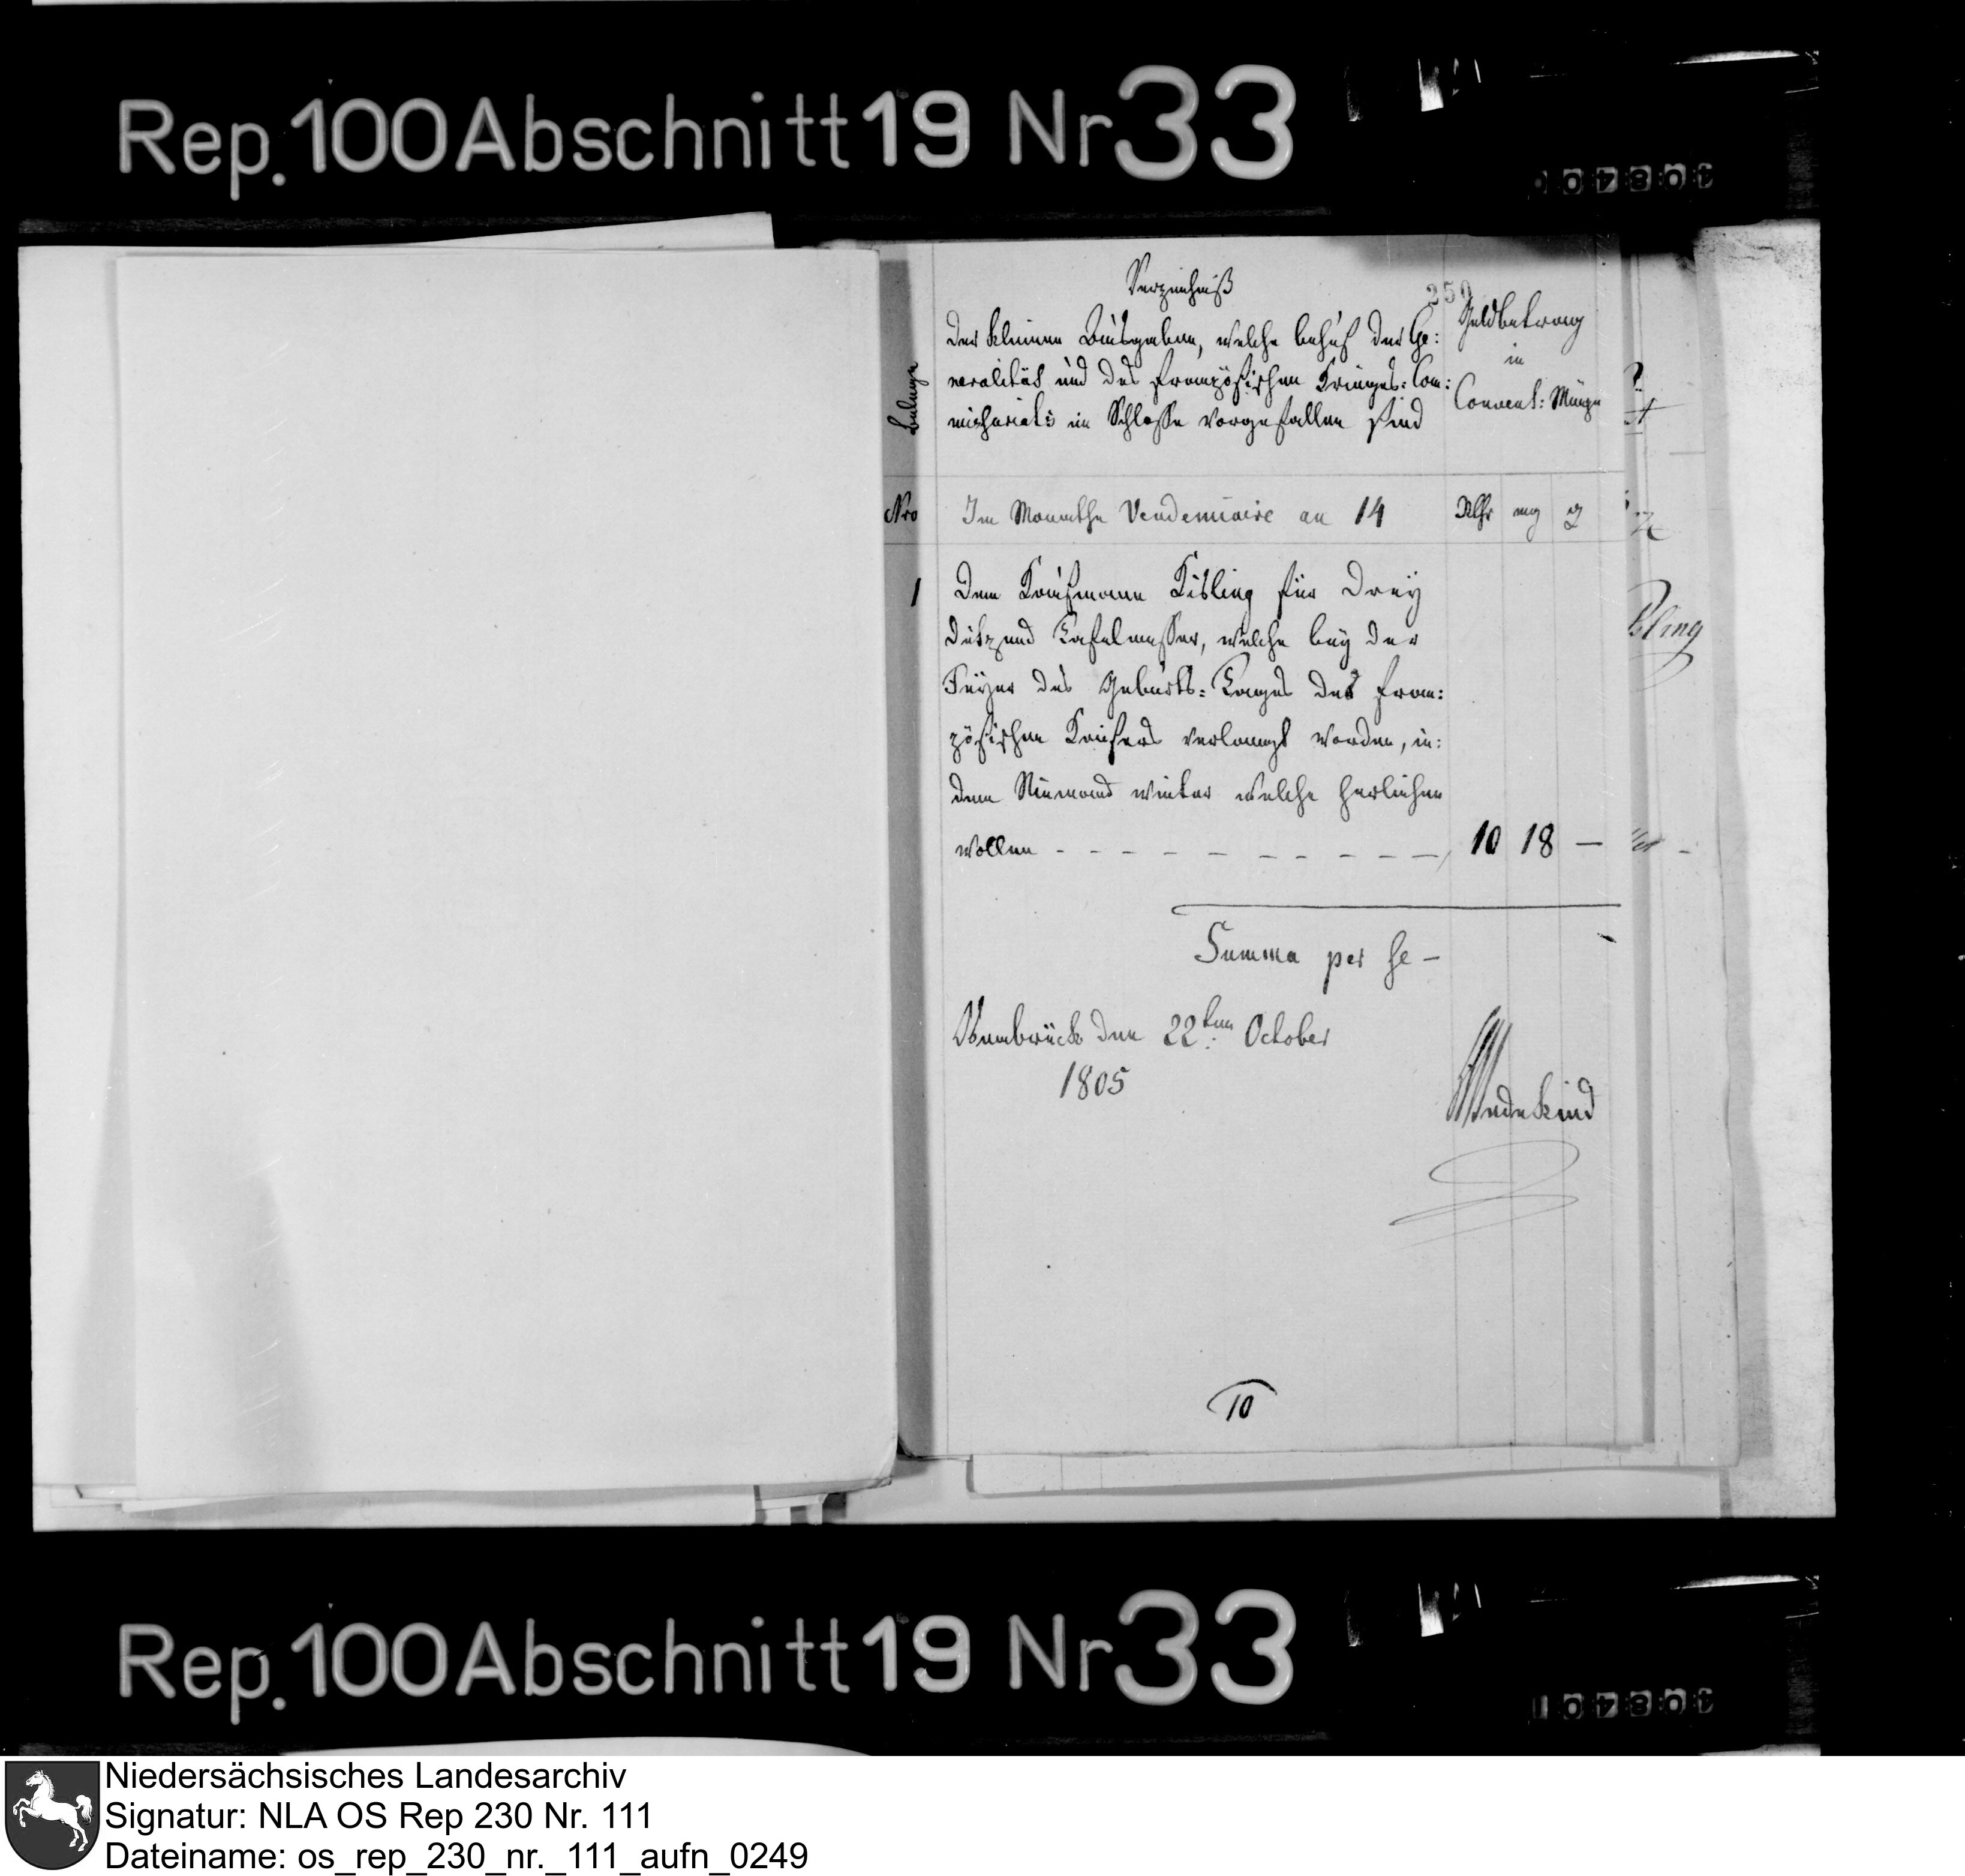 Rep. 100 Abschnitt 19 Nr 33
259
Verzeichniß
der kleinen Ausgaben, welche behuf der Ge:
neralität und des französischen Krieges: Com:
missariats im Schlosse vorgefallen sind
Belege
Geldbetrag
in
Convent: Münze
Nro
Im Monathe Vendemiaire an 14
Rthr mg ₰
1 Dem Kaufmann Kisling für drey
Dutzend Tafelmesser, welche bey der
Feyer des Geburts: Tages des fran:
zösischen Kaisers verlangt worden, in:
dem Niemand weiter welche herleihen
wollen - - - - - - - - - - 10 18 —
Summa per se —
Osnabrück den 22ten October
1805
Wedekind
10
bling
Rep. 100 Abschnitt 19 Nr 33
Niedersächsisches Landesarchiv
Signatur: NLA OS Rep 230 Nr. 111
Dateiname: os_rep_230_nr._111_aufn_0249